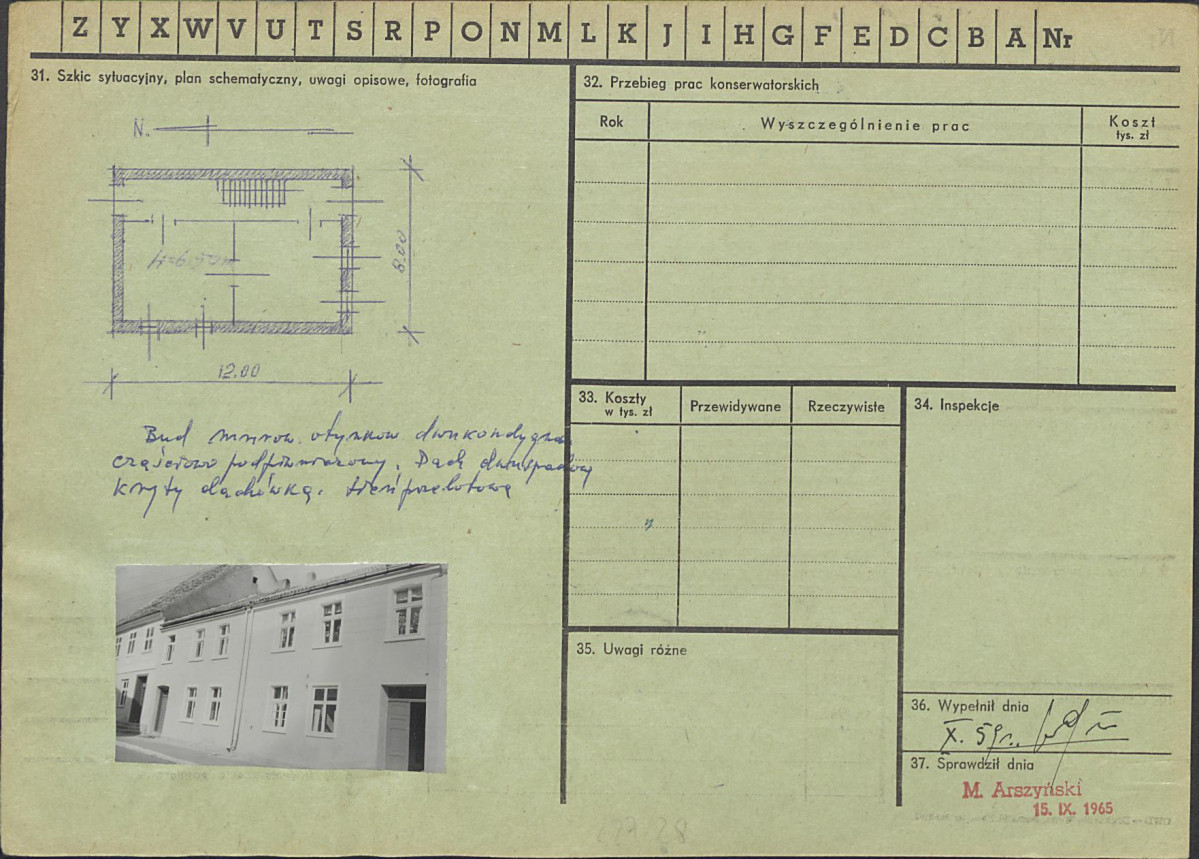 Z Y X W V U T S R P O N M L K J I H G F E D C B A Nr
31. Szkic sytuacyjny, plan schematyczny, uwagi opisowe, fotografia
N.
8.00
12.00
Bud murow. otynkow. dwukondygnac
częściowo podpiwniczony. Dach dwuspadowy
kryty dachówką. sień przelotowa
32. Przebieg prac konserwatorskich
Rok
Wyszczególnienie prac
Koszt
tys. zł
33. Koszty
w tys. zł
Przewidywane
Rzeczywiste
34. Inspekcje
35. Uwagi różne
36. Wypełnił dnia
X. 59 r.
37. Sprawdził dnia
M. Arszyński
15. IX. 1965